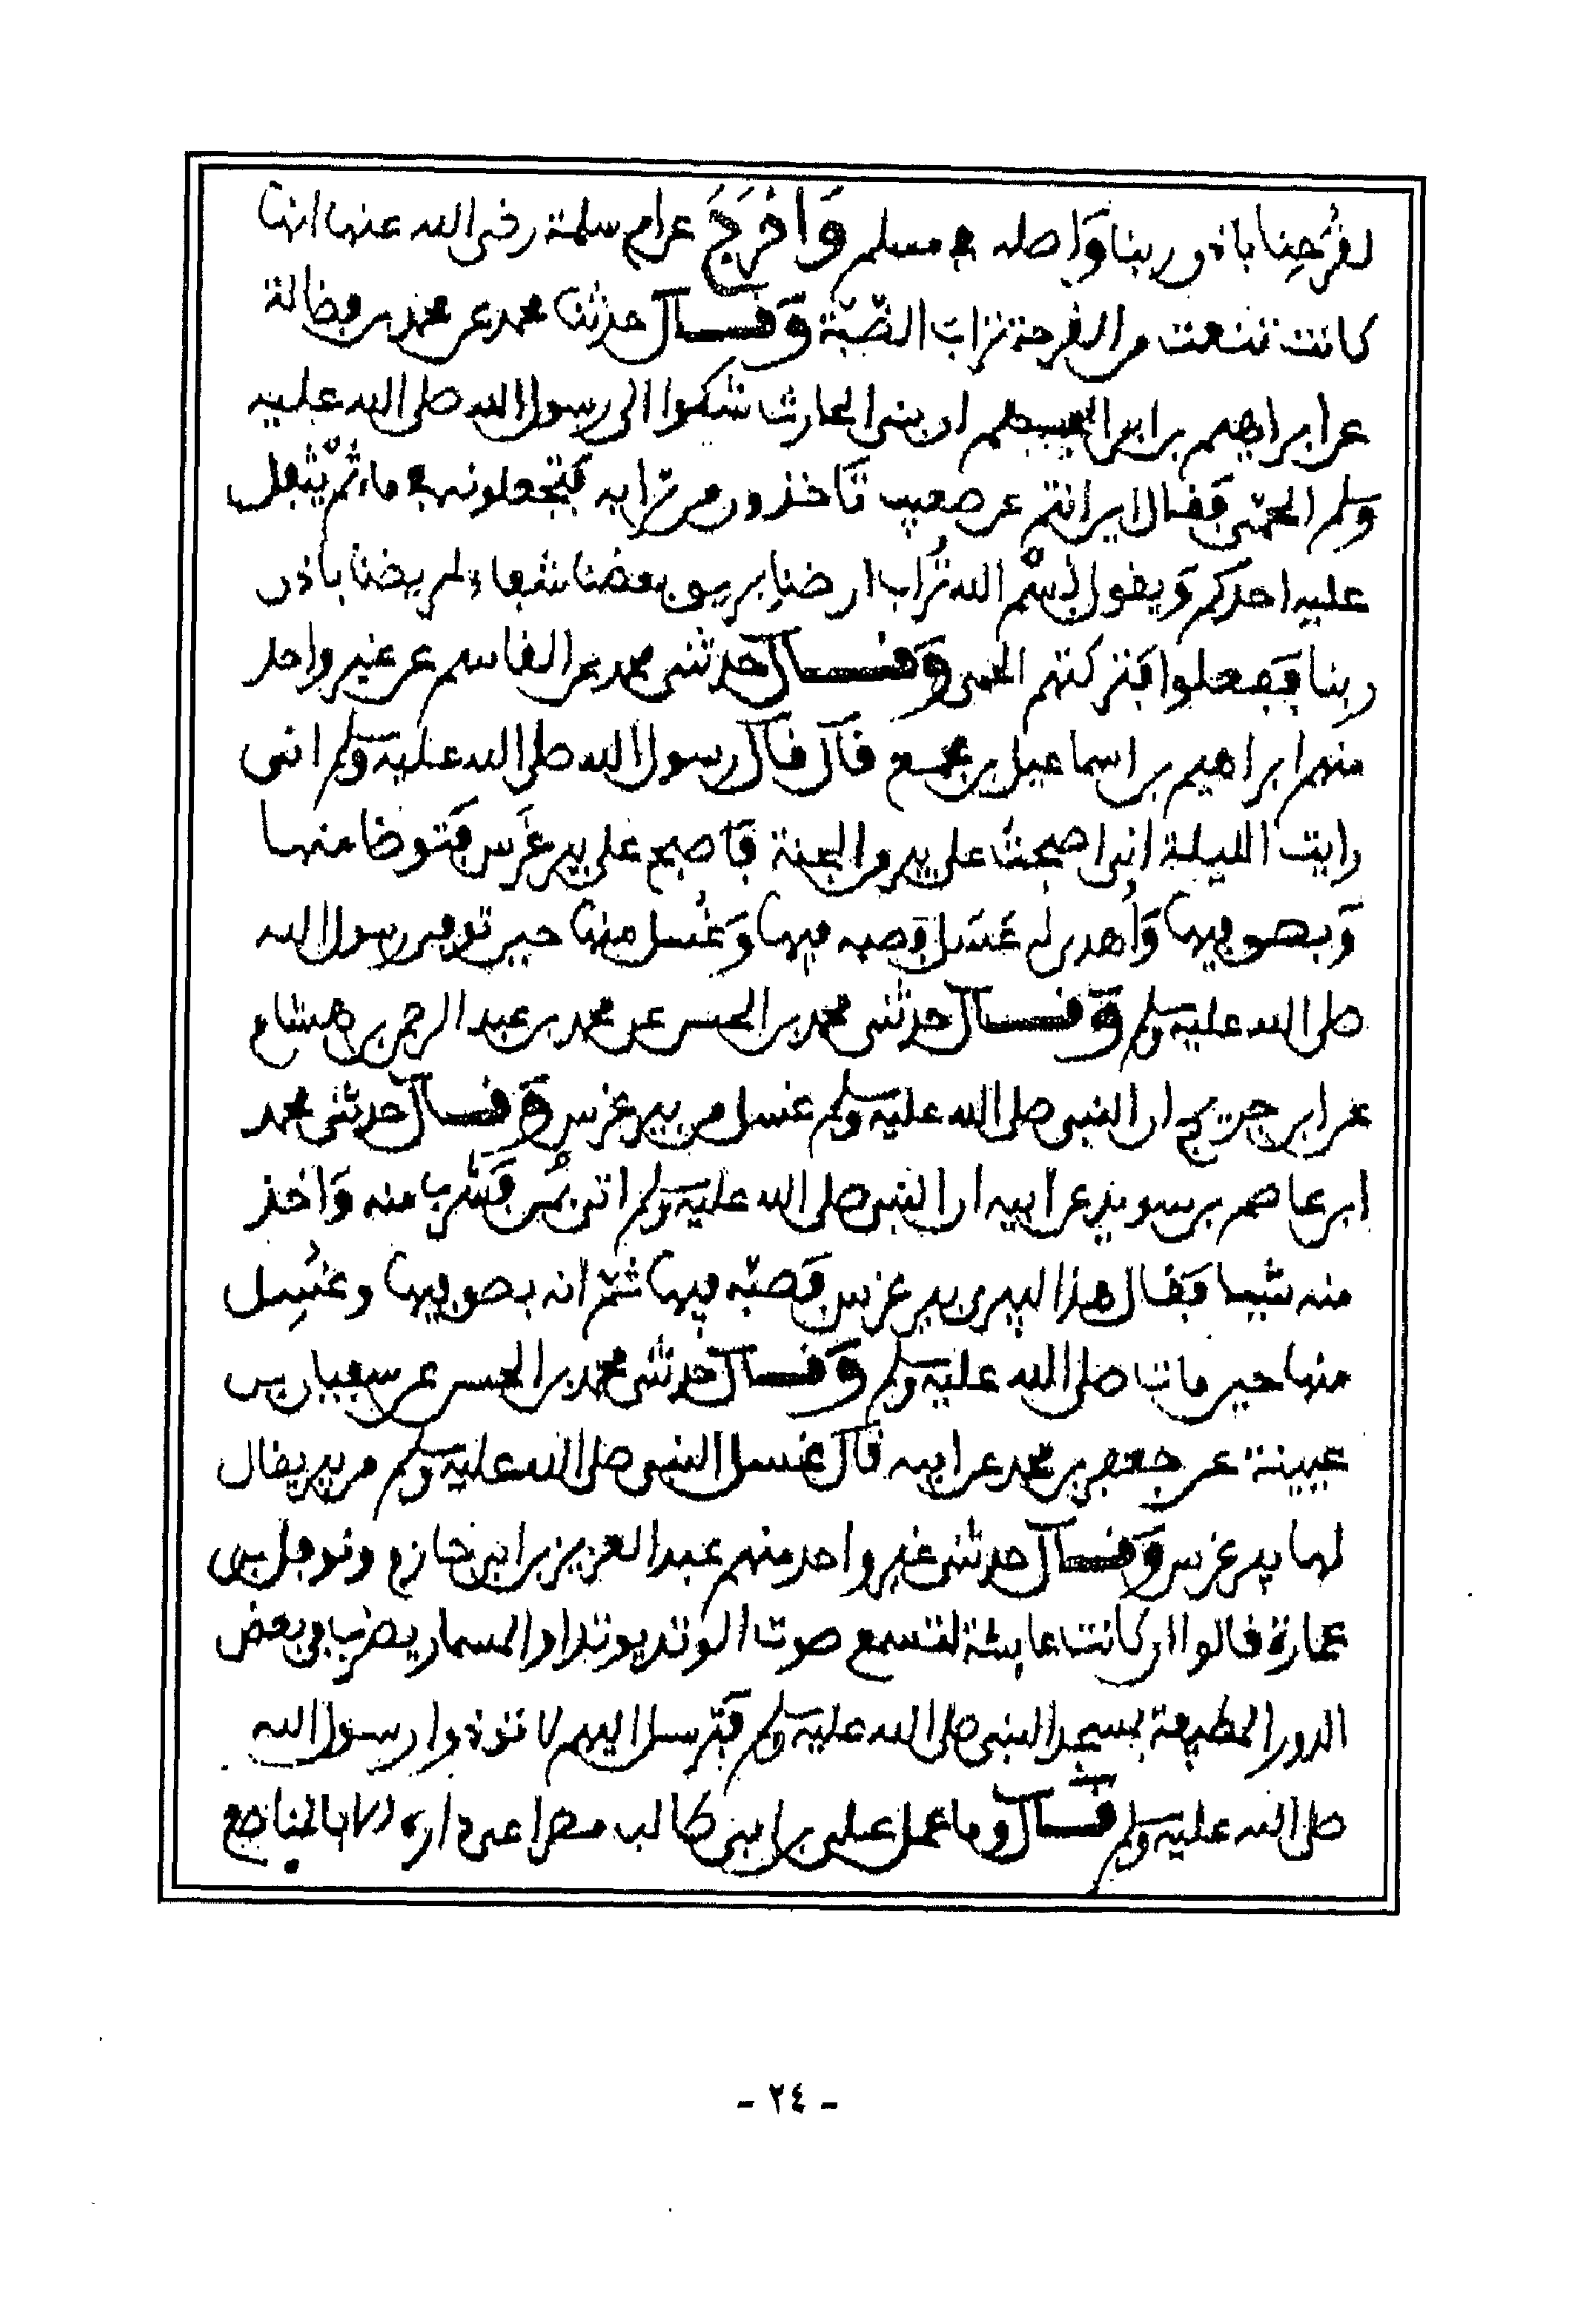 لقرحنا باذن ربنا وَاصله في مسلم وَاخرَجَ عن ام سلمة رضى الله عنها انها
كانت تنعت من القرحة تراب الضبّة وَقال حدثنا محمد عن محمد بن فضالة
عن ابراهيم بن ان بنى الحارث شكوا الى رسول الله صلى الله عليه
وسلم الحمّى فَقال اين انتم عن صعيب تاخذون من ترابه فَتجعلونه في ماء ثم يتفل
عليه احدكم وَيقول بِسْم الله تُراب ارضنا بريق بعضنا شفاء لمريضنا باذن
ربنا فَفعلوا فَتركتهم الحمى وَقال حدثنى محمد عن القاسم عن غير واحد
منهم ابراهيم بن اسماعيل بن مجمع قال قال رسول الله صلى الله عليه وسلم انى
رايت الليلة انى اصبحت على بير من الجنة فَاصبح على بير غَرس فَتوضا منها
وَبصق فيها وَاُهدى له عَسَل فصبه فيها وَغُسل منها حين توفى رسول الله
صلى الله عليه وسلم وَقال حدثنى محمد بن الحسن عن محمد بن عبد الرحمن بن هشام
عن ابن جريج ان النبى صلى الله عليه وسلم غسل من بير غرس وَقال حدثنى محمد
ابن عاصم بن سويد عن ابيه ان النبى صلى الله عليه وسلم اتى فَشرب منه وَاخذ
منه شيا فَقال هذا لبيرى بير غرس فَصبّه فيها ثمّ انه بصق فيها وغُسِل
منها حين مات صلى الله عليه وسلم وَقال حدثنى محمد بن الحسن عن سفيان بن
عيينة عن جعفر بن محمد عن ابيه قال غسل النبى صلى الله عليه وسلم من بير يقال
لها بير غرس وَقال حدثنى غير واحد منهم عبد العزيز بن ابى حازم ونوفل بن
عمارة قالوا ان كانت عايشة لتسمع صوت الوتد يوتد او المسمار يضرب في بعض
الدور المطيفة بمسجد النبى صلى الله عليه وسلم فَترسل اليهم لا توذوا رسول الله
صلى الله عليه وسلم قال وما عمل على بن ابى طالب مصراعى داره الا بالمناصع
- ٢٤ -